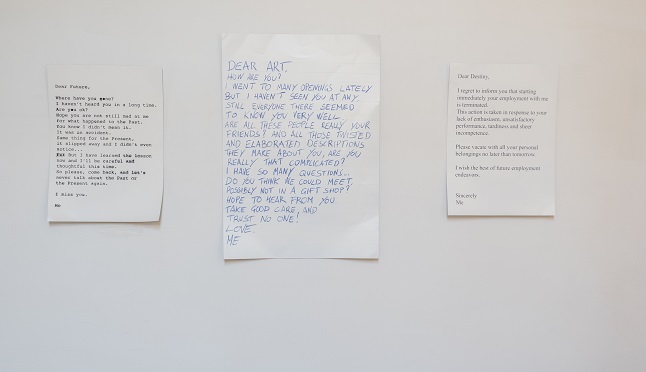 Dear Future,
Where have you gone?
I haven't heard you in a long time.
Are you ok?
Hope you are not still mad at me
for what happened to the Past.
You know I didn't mean it.
It was an accident.
Same thing for the Present,
it slipped away and I didn't even
notice...
But I have learned the lesson
now and I'll be careful and
thoughtful this time.
So please, come back, and let's
never talk about the Past or
the Present again.
I miss you.
Me
DEAR ART,
HOW ARE YOU?
I WENT TO MANY OPENINGS LATELY
BUT I HAVEN'T SEEN YOU AT ANY.
STILL EVERYONE THERE SEEMED
TO KNOW YOU VERY WELL.
ARE ALL THESE PEOPLE REALLY YOUR
FRIENDS? AND ALL THOSE TWISTED
AND ELABORATED DESCRIPTIONS
THEY MAKE ABOUT YOU, ARE YOU
REALLY THAT COMPLICATED?
I HAVE SO MANY QUESTIONS...
DO YOU THINK WE COULD MEET,
POSSIBLY NOT IN A GIFT SHOP?
HOPE TO HEAR FROM YOU.
TAKE GOOD CARE, AND
TRUST NO ONE!
LOVE.
ME
Dear Destiny,
I regret to inform you that starting
immediately your employment with me
is terminated.
This action is taken in response to your
lack of enthusiasm, unsatisfactory
performance, tardiness and sheer
incompetence.
Please vacate with all your personal
belongings no later than tomorrow.
I wish the best of future employment
endeavors.
Sincerely
Me